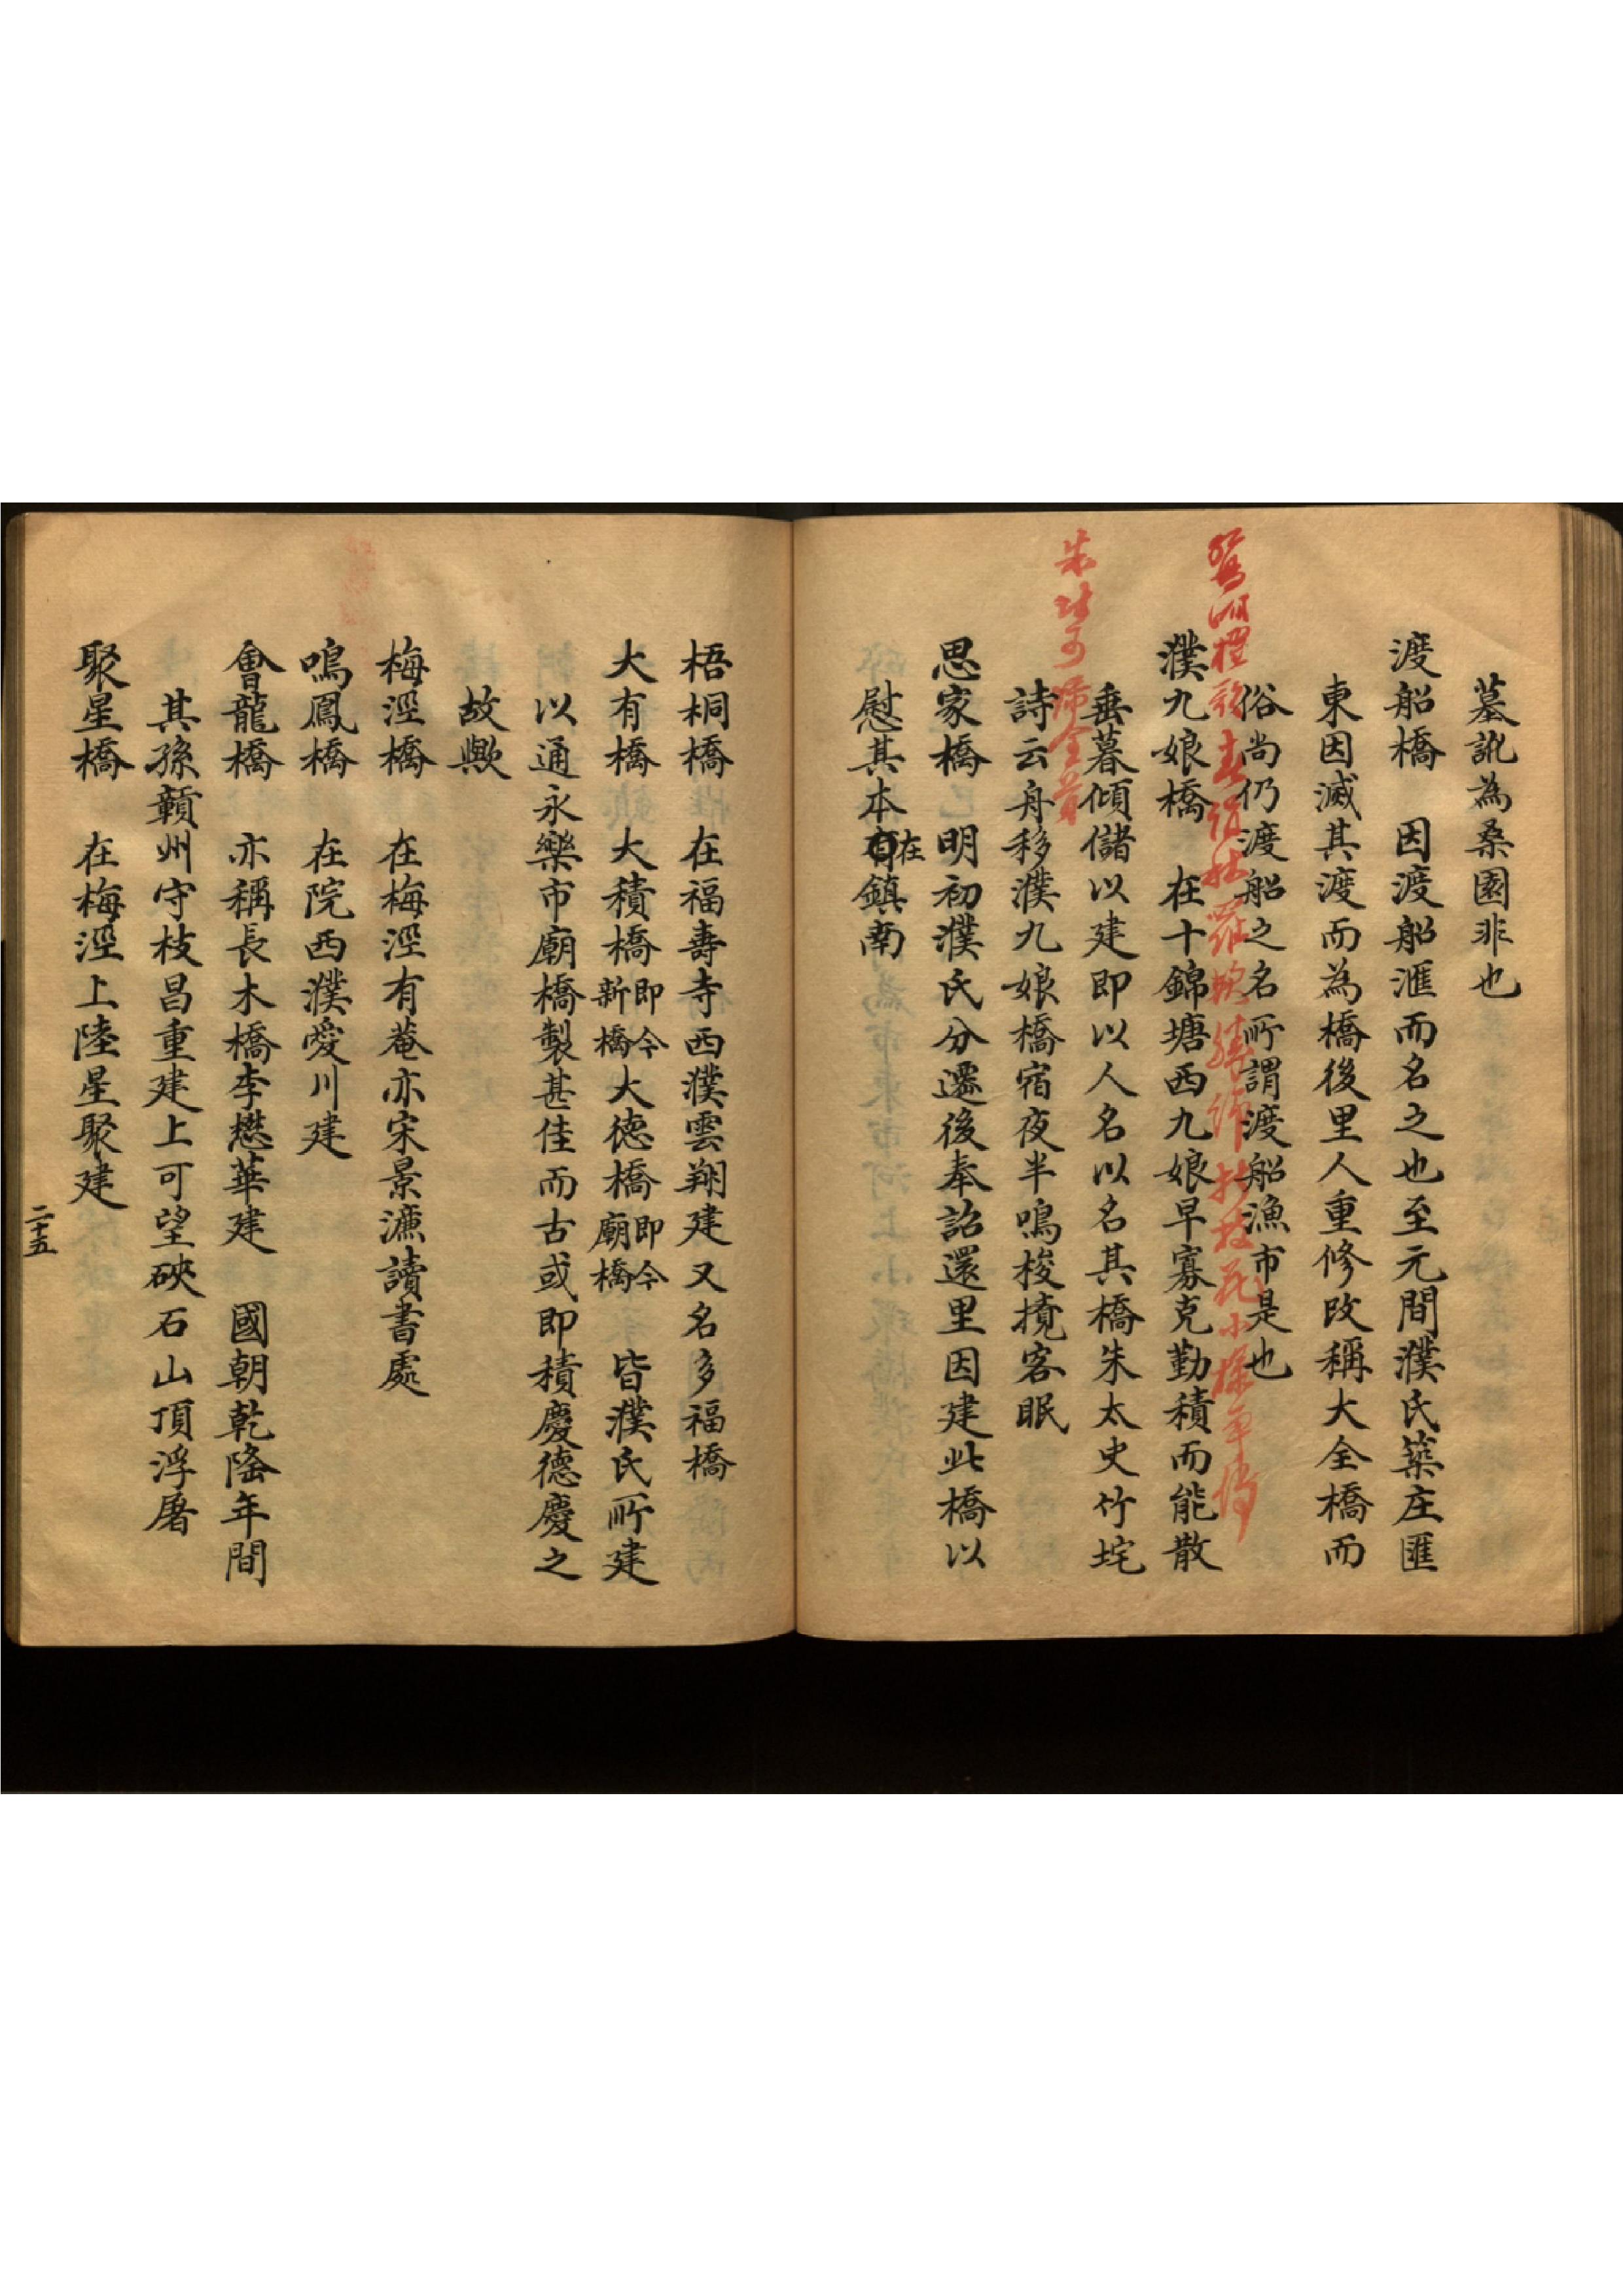 墓訛為桑園非也
渡船橋　因渡船滙而名之也至元間濮氏築庄匯
東因滅其渡而為橋後里人重修改稱大全橋而
俗尚仍渡船之名所謂渡船漁市是也
濮九娘橋　在十錦塘西九娘早寡克勤積而能散
垂暮傾儲以建即以人名以名其橋朱太史竹垞
詩云舟移濮九娘橋宿夜半鳴梭攪客眠
思家橋　明初濮氏分遷後奉詔還里因建此橋以
慰其本在鎮南
梧桐橋　在福壽寺西濮雲翔建又名多福橋
大有橋　大積橋即今新橋大德橋即今廟橋　皆濮氏所建
以通永樂市廟橋製甚佳而古或即積慶德慶之
故歟
梅涇橋　在梅涇有菴亦宋景濂讀書處
鳴鳳橋　在院西濮愛川建
會龍橋　亦稱長木橋李懋華建　國朝乾隆年間
其孫贛州守枝昌重建上可望硤石山頂浮屠
聚星橋　在梅涇上陸星聚建
二十五